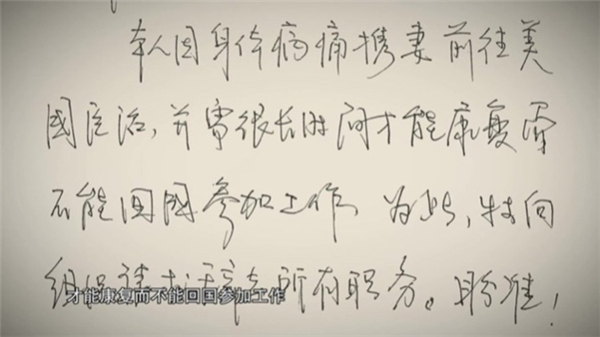 本人因身体病痛携妻前往美
國医治,并需很长时间才能康复而
不能回國参加工作,为此,特向
组织请求辞去所有职务。盼准!
才能康复而不能回国参加工作